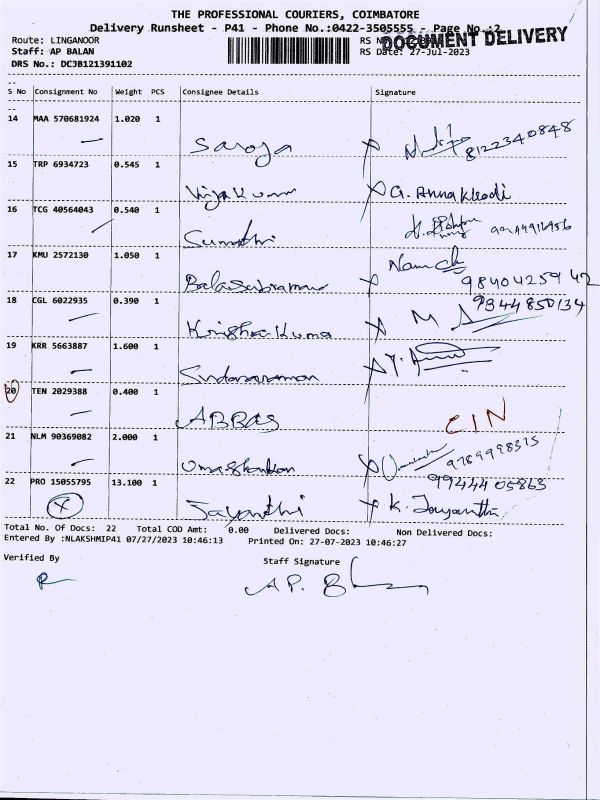 THE PROFESSIONAL COURIERS, COIMBATORE
Delivery Runsheet - P41 - Phone No.:0422-3505555 - Page No.:2
DOCUMENT DELIVERY
Route: LINGANOOR
Staff: AP BALAN RS Date: 27-Jul-2023
DRS No.: DCJB121391102
S No Consignment No Weight PCS Consignee Details Signature
14 MAA 570681924 1.020 1 Saroja 8122340848
15 TRP 6934723 0.545 1 Vijaykumar G.
16 TCG 40564043 0.540 1 Sumathi
17 KMU 2572130 1.050 1 Balasubramani 9840425942
18 CGL 6022935 0.390 1 Krishnakumar 9344850134
19 KRR 5663887 1.600 1 Sundararaman
20 TEN 2029388 0.400 1 ABBAS CIN
21 NLM 90369082 2.000 1 Umashankar 9789998375
22 PRO 15055795 13.100 1 Jayanthi K. Jayanthi 9944405863
Total No. Of Docs: 22 Total COD Amt: 0.00 Delivered Docs: Non Delivered Docs:
Entered By :NLAKSHMIP41 07/27/2023 10:46:13 Printed On: 27-07-2023 10:46:27
Verified By Staff Signature
A.P. B